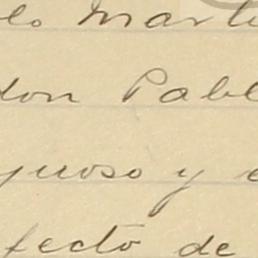 lo Marti
don Pabl
guoso y e
fecto de